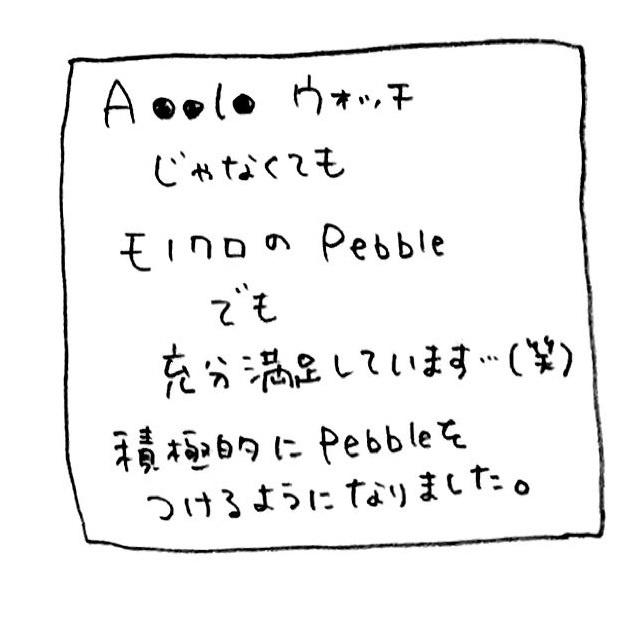 A●●l● ウォッチ
じゃなくても
モノクロの Pebble
でも
充分満足しています…(笑)
積極的にPebbleを
つけるようになりました。